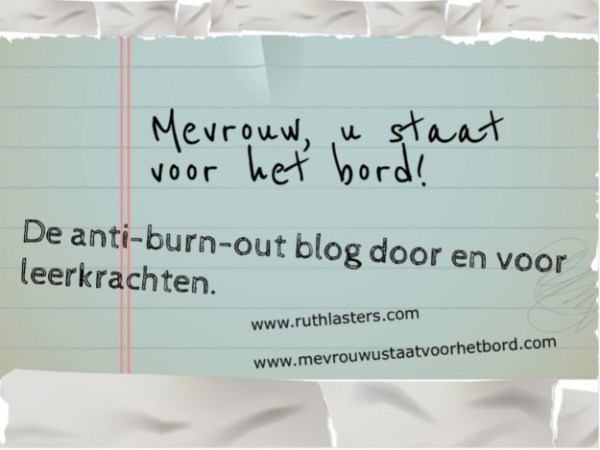 Mevrouw, u staat
voor het bord!
De anti-burn-out blog door en voor
leerkrachten.
www.ruthlasters.com
www.mevrouwustaatvoorhetbord.com